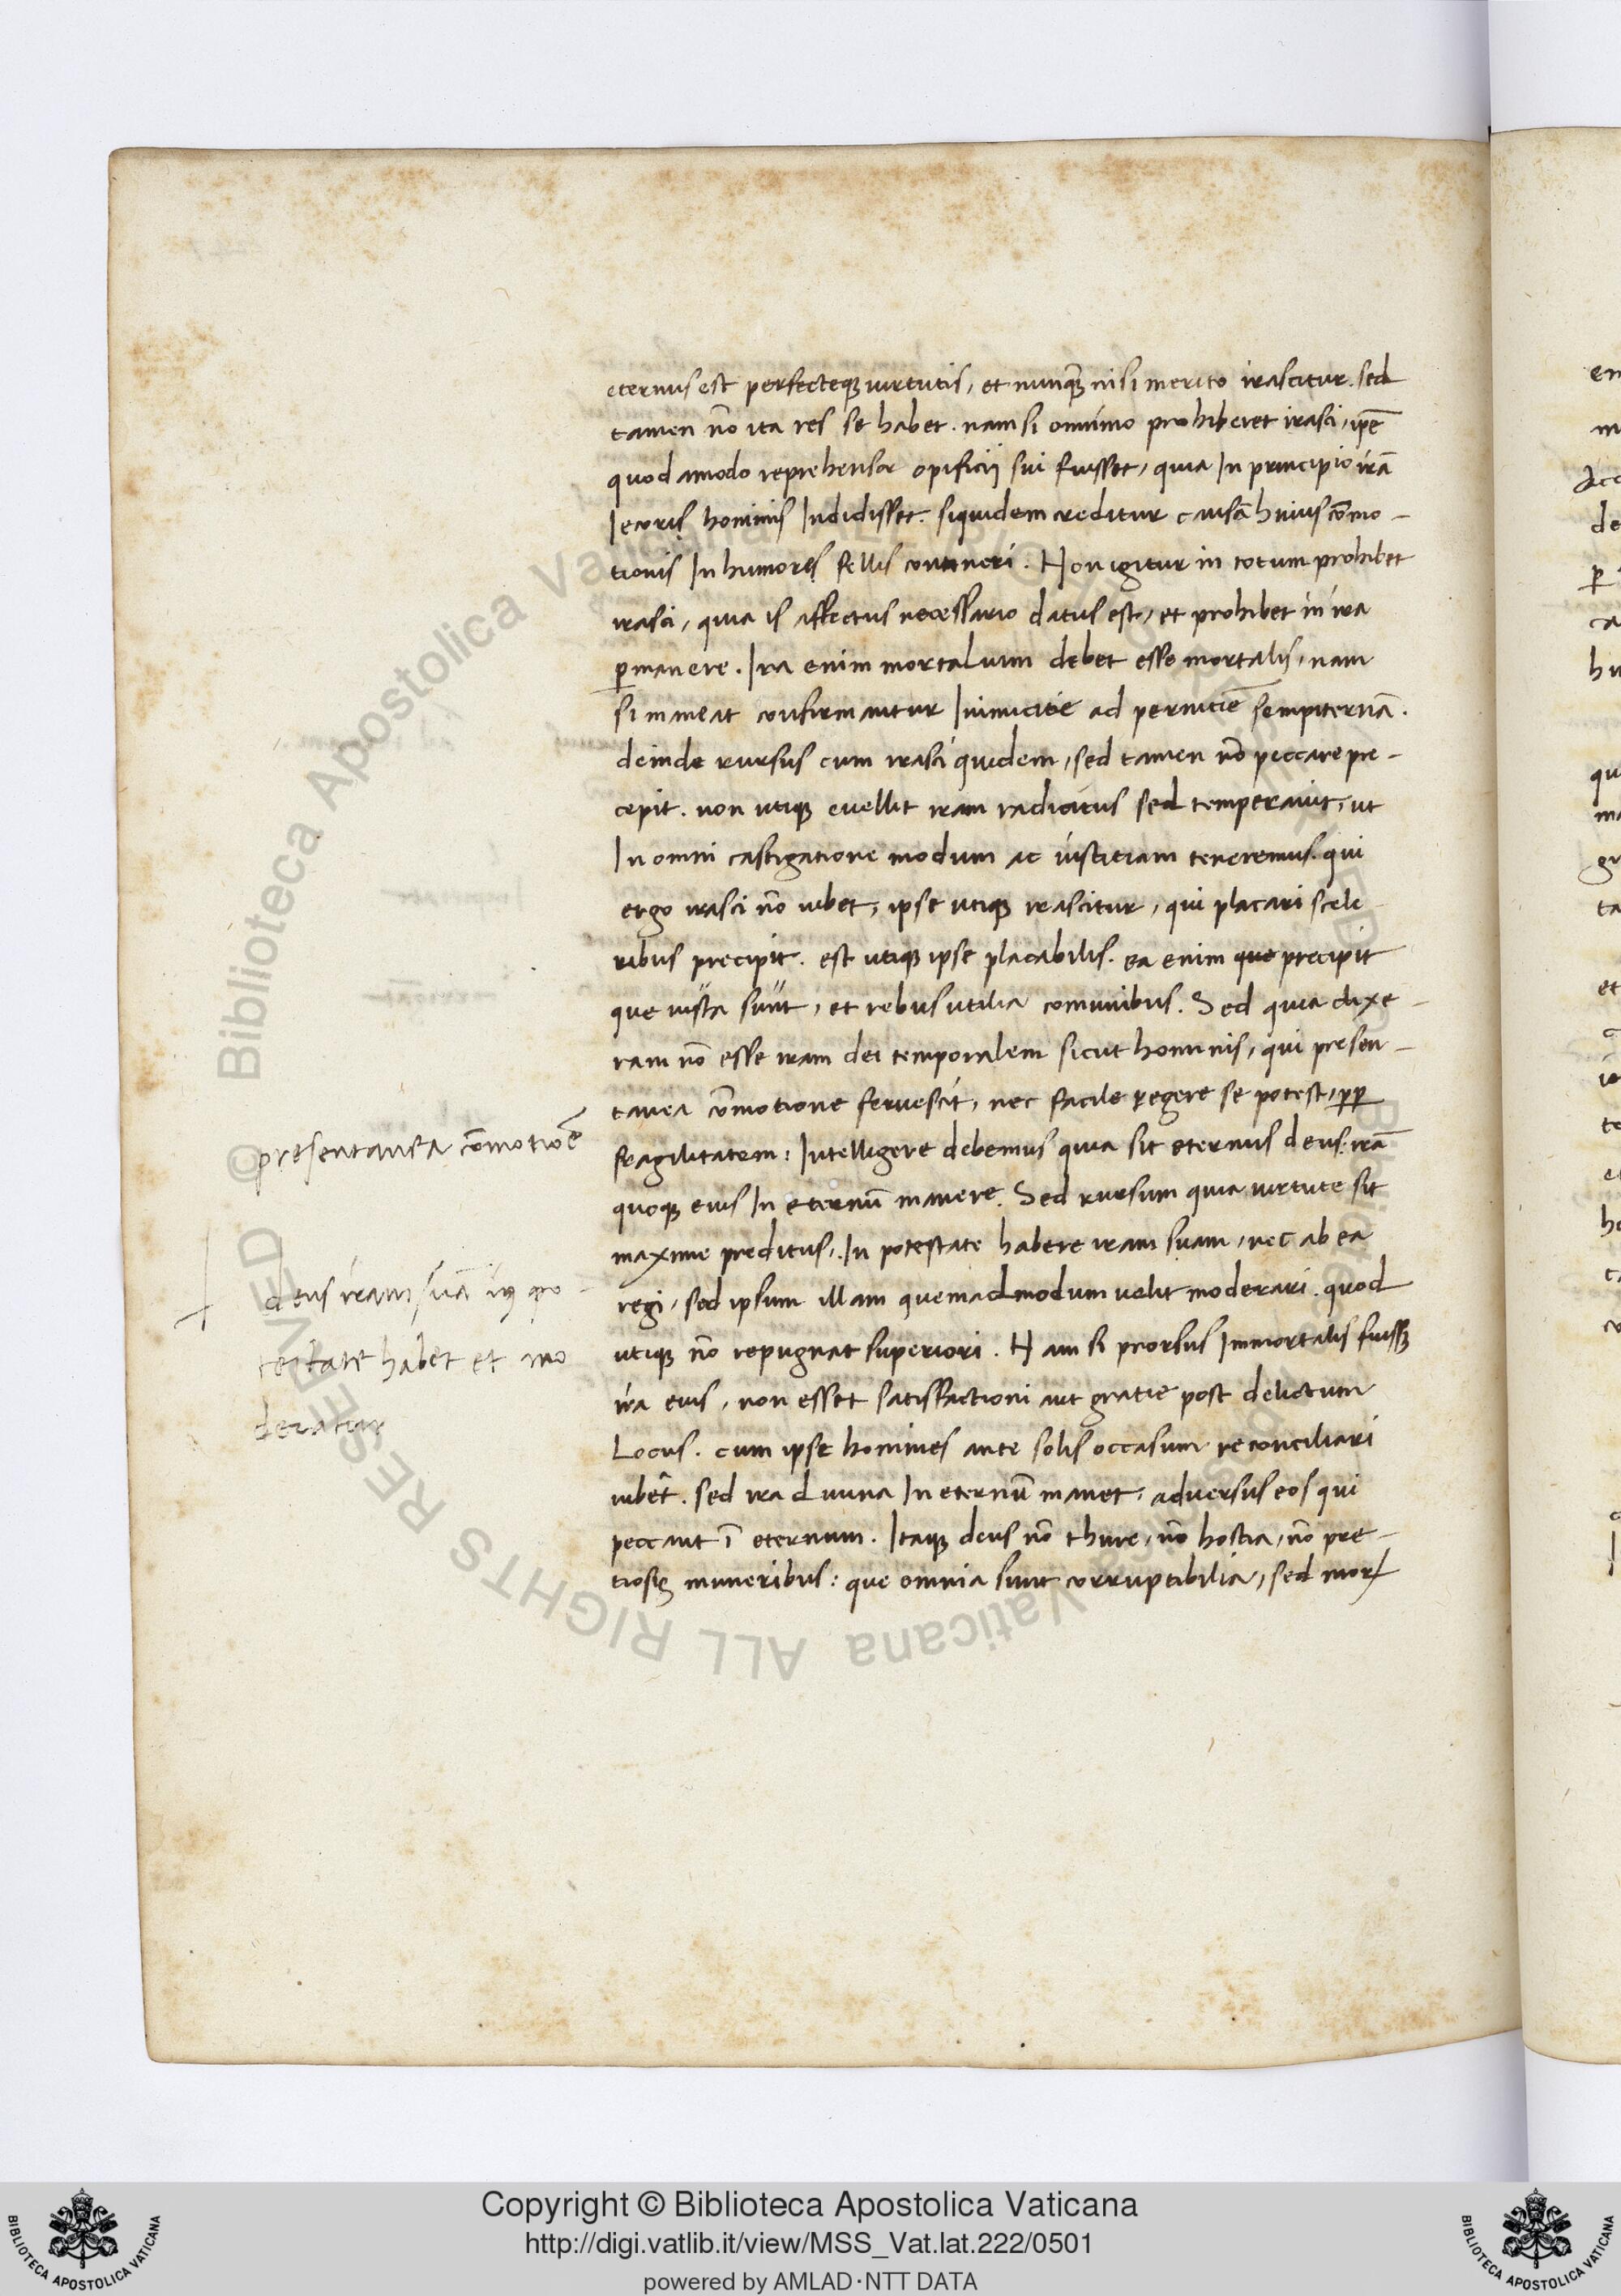 eternus est perfecteqꝫ uirtutis, et nunqꝫ̃ nisi merito irascitur. sed
tamen nõ ita res se habet. nam si omnino prohiberet irasci, ip̃e
quodamodo reprehensor opificij sui fuisset, quia In principio irã
Iecoris hominis Indidisset. siquidem creditur causã huius cõmo-
tionis In humores fellis contineri. Non igitur in totum prohibet
irasci, quia is affectus necessario datus est, et prohibet in ira
ꝑmanere. Ira enim mortalium debet esse mortalis, nam
si maneat confirmantur Inimicitie ad perniciẽ sempiternã.
deinde rursus cum irasci quidem, sed tamen nõ peccare pre-
cepit. non utiqꝫ euellit iram radicitus sed temperauit, ut
In omni castigatione modum ac iustitiam teneremus. qui
ergo irasci nõ iubet, ipse utiqꝫ irascitur, qui placari scele
ribus precipit. est utiqꝫ ipse placabilis. ea enim que precipit
que iusta sunt, et rebus utilia comunibus. Sed quia dixe-
ram nõ esse iram dei temporalem sicut hominis, qui presen-
tanea cõmotione feruescit, nec facile regere se potest, ꝓꝑ
fragilitatem: Intelligere debemus quia sit eternus deus: irã
quoqꝫ eius In eternũ manere. Sed rursum quia uirtute sit
maxime preditus, In potestate habere iram suam, nec ab ea
regi, sed ipsum illam quemadmodum uelit moderari. quod
utiqꝫ nõ repugnat superiori. Nam si prorsus Immortalis fuissꝫ
ira eius, non esset satisfactioni aut gratie post delictum
Locus. cum ipse homines ante solis occasum reconciliari
iubet. sed ira diuina In eternũ manet, aduersus eos qui
peccant ĩ eternum. Itaqꝫ deus nõ thure, nõ hostia, nõ pre-
tiosis muneribus: que omnia sunt corruptibilia, sed morꝝ
presentanea cõmotiõe
deus iram suã in po-
testate habet et mo
deratur
Copyright © Biblioteca Apostolica Vaticana
http://digi.vatlib.it/view/MSS_Vat.lat.222/0501
powered by AMLAD·NTT DATA
BIBLIOTECA APOSTOLICA VATICANA
BIBLIOTECA APOSTOLICA VATICANA
© Biblioteca Apostolica Vaticana ALL RIGHTS RESERVED